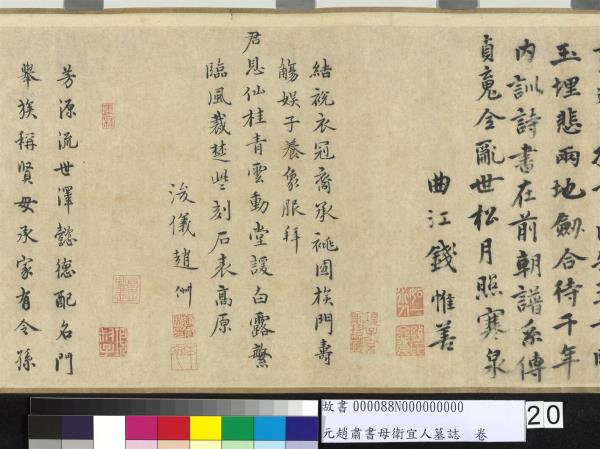 玉埋悲兩地劍合待千年
内訓詩書在前朝譜系傳
貞䰟今亂世松月照寒泉
曲江錢惟善
結帨衣冠裔承祧國族門壽
觴娛子養象服拜
君恩仙桂青雲動堂諼白露繁
臨風裁楚些刻石表高原
浚儀趙俶
芳源流世澤懿德配名門
舉族稱賢母承家有令孫
故書 000088N000000000
元趙肅書母衛宜人墓誌 卷
20